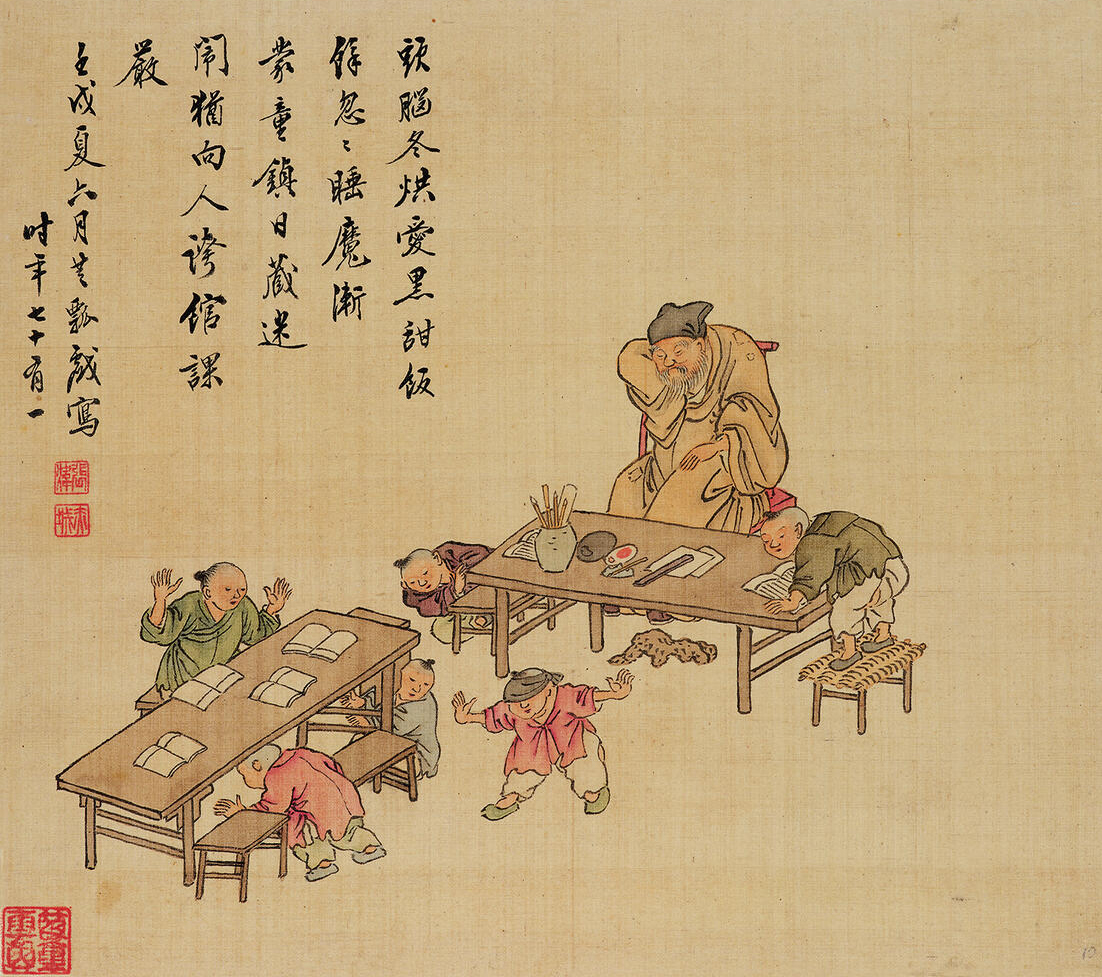 頭腦冬烘愛黑甜飯
餘忽〻睡魔漸
蒙童鎮日藏迷
鬧猶向人誇館課
嚴
壬戌夏六月瓢戲寫
时年七十有一